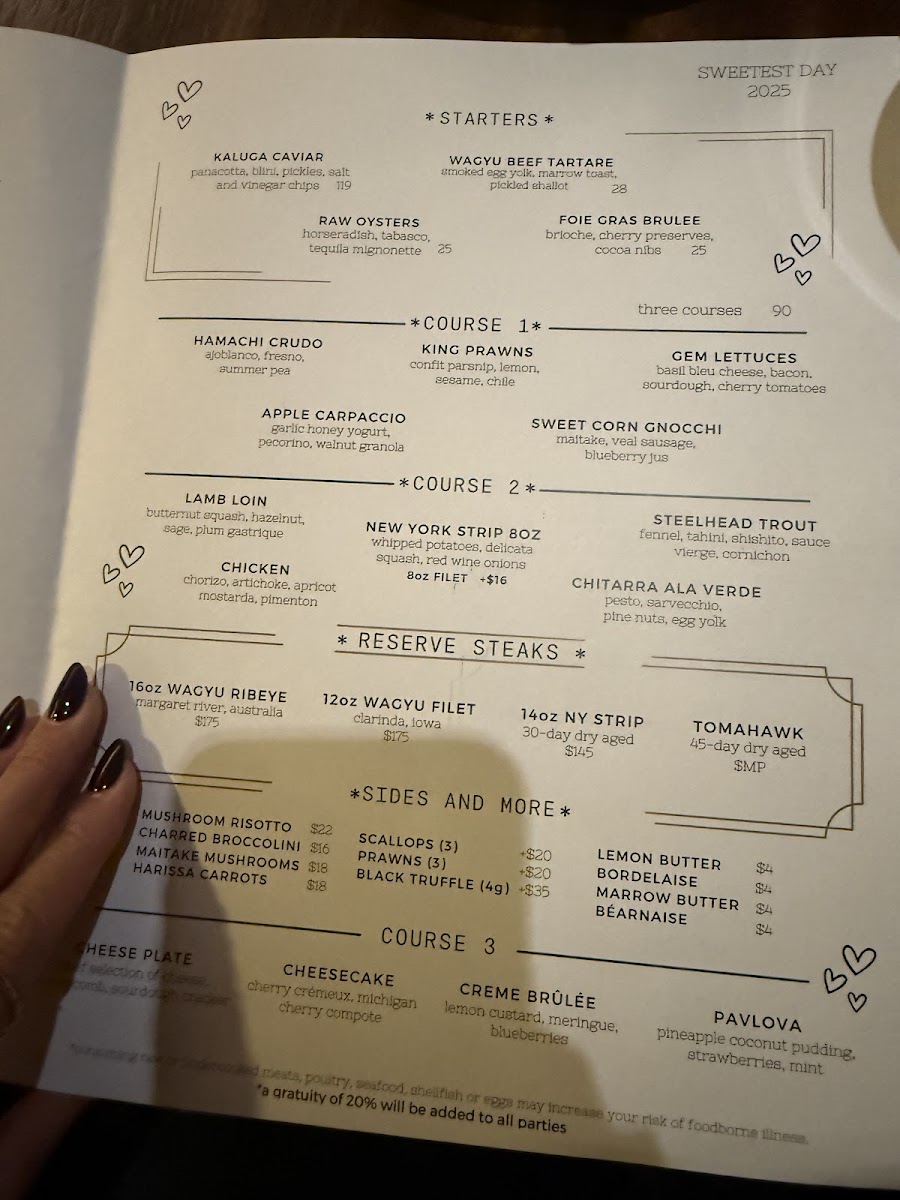 SWEETEST DAY
2025
*STARTERS*
KALUGA CAVIAR
panacotta, blini, pickles, salt
and vinegar chips 119
WAGYU BEEF TARTARE
smoked egg yolk, marrow toast,
pickled shallot 28
RAW OYSTERS
horseradish, tabasco,
tequila mignonette 25
FOIE GRAS BRULEE
brioche, cherry preserves,
cocoa nibs 25
three courses 90
*COURSE 1*
HAMACHI CRUDO
ajoblanco, fresno,
summer pea
KING PRAWNS
confit parsnip, lemon,
sesame, chile
GEM LETTUCES
basil bleu cheese, bacon,
sourdough, cherry tomatoes
APPLE CARPACCIO
garlic honey yogurt,
pecorino, walnut granola
SWEET CORN GNOCCHI
maitake, veal sausage,
blueberry jus
*COURSE 2*
LAMB LOIN
butternut squash, hazelnut,
sage, plum gastrique
NEW YORK STRIP 8OZ
whipped potatoes, delicata
squash, red wine onions
8oz FILET +$16
STEELHEAD TROUT
fennel, tahini, shishito, sauce
vierge, cornichon
CHICKEN
chorizo, artichoke, apricot
mostarda, pimenton
CHITARRA ALA VERDE
pesto, sarvecchio,
pine nuts, egg yolk
* RESERVE STEAKS *
16oz WAGYU RIBEYE
margaret river, australia
$175
12oz WAGYU FILET
clarinda, iowa
$175
14oz NY STRIP
30-day dry aged
$145
TOMAHAWK
45-day dry aged
$MP
*SIDES AND MORE*
MUSHROOM RISOTTO $22
CHARRED BROCCOLINI $16
MAITAKE MUSHROOMS $18
HARISSA CARROTS $18
SCALLOPS (3) +$20
PRAWNS (3) +$20
BLACK TRUFFLE (4g) +$35
LEMON BUTTER $4
BORDELAISE $4
MARROW BUTTER $4
BÉARNAISE $4
COURSE 3
CHEESE PLATE
selection of cheese,
sourdough cracker
CHEESECAKE
cherry crémeux, michigan
cherry compote
CREME BRÛLÉE
lemon custard, meringue,
blueberries
PAVLOVA
pineapple coconut pudding,
strawberries, mint
*consuming raw or undercooked meats, poultry, seafood, shellfish or eggs may increase your risk of foodborne illness.
*a gratuity of 20% will be added to all parties